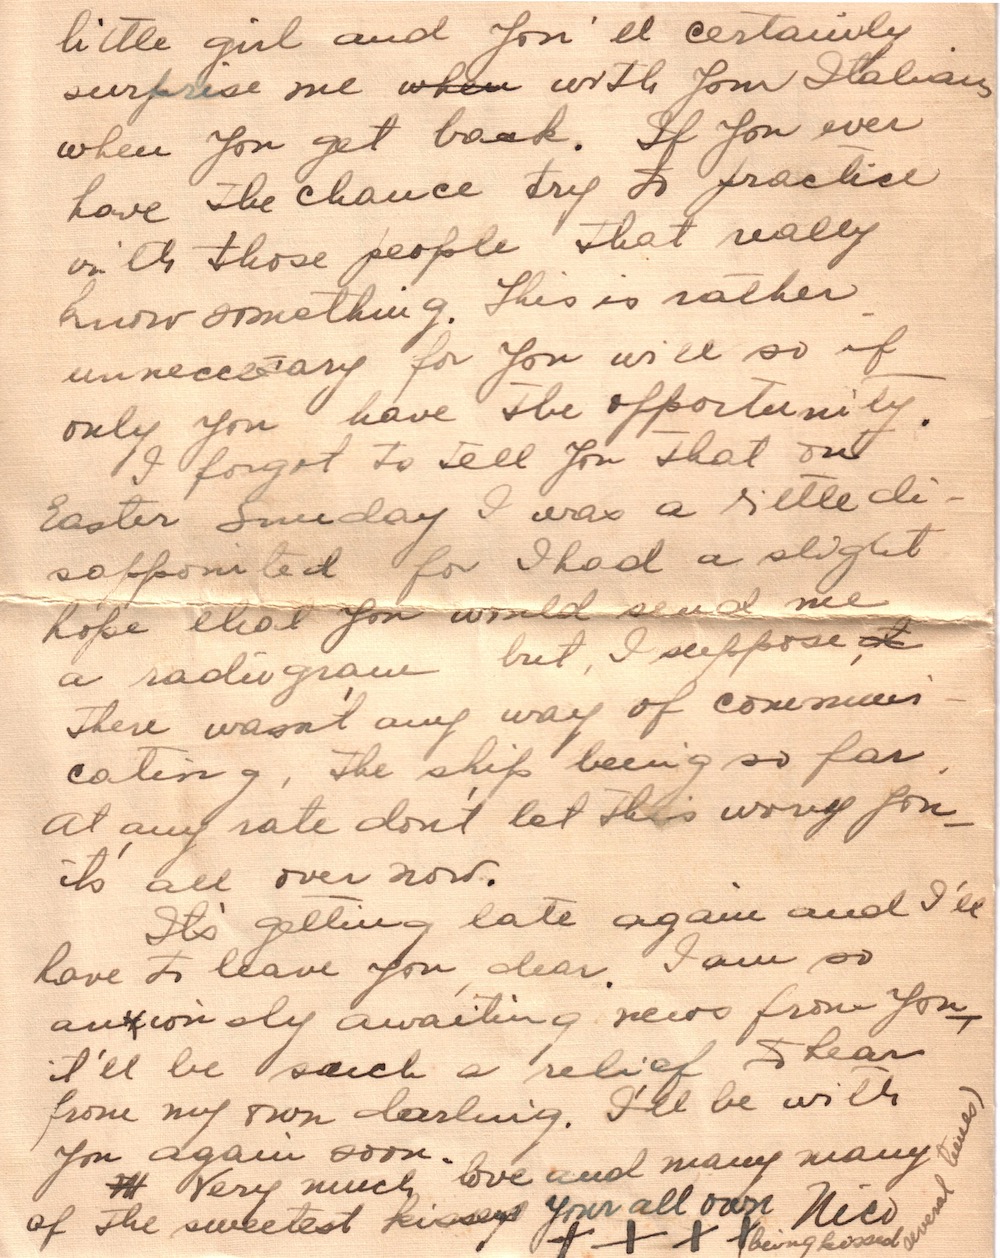 little girl and you'll certainly
surprise me when with your Italian,
when you get back. If you ever
have the chance try to practice
with those people that really
know something. This is rather
unneccesary for you will so if
only you have the opportunity.
I forgot to tell you that on
Easter Sunday I was a little di-
sappointed for I had a slight
hope that you would send me
a radiogram but, I suppose, it
there wasn't any way of communi-
cating, the ship being so far.
At any rate don't let this worry you_
it's all over now.
It's getting late again and I'll
have to leave you, dear. I am so
anxiously awaiting news from you,
it'll be such a relief to hear
from my own darling. I'll be with
you again soon.
Very much love and many many
of the sweetest kisses your all own Nico
+ + + +
(being kissed several times)